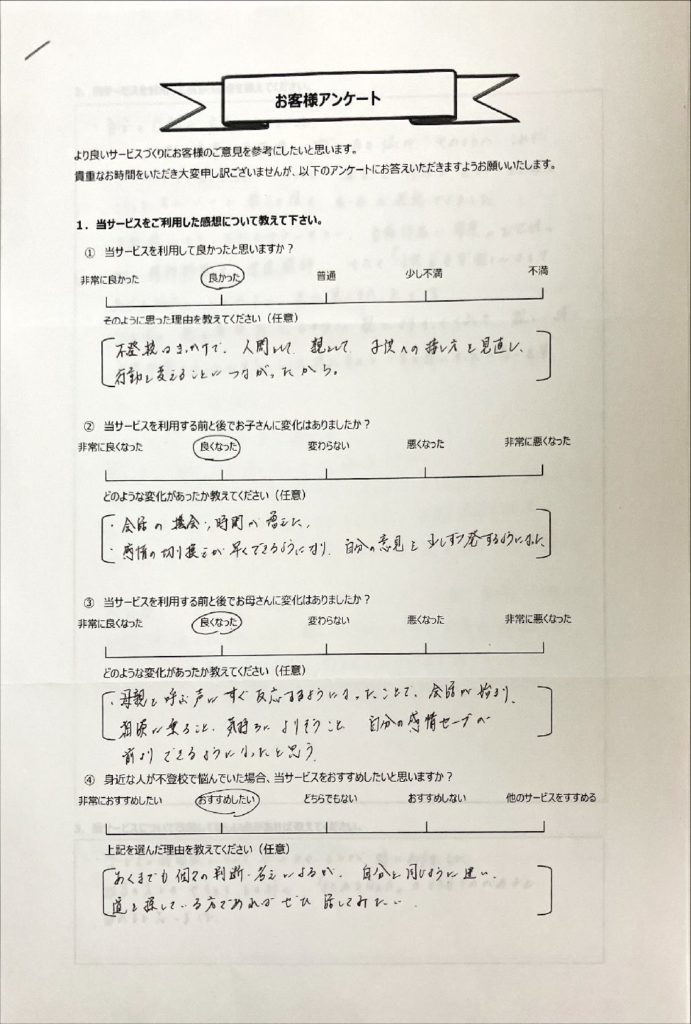 お客様アンケート
より良いサービスづくりにお客様のご意見を参考にしたいと思います。
貴重なお時間をいただき大変申し訳ございませんが、以下のアンケートにお答えいただきますようお願いいたします。
1．当サービスをご利用した感想について教えて下さい。
① 当サービスを利用して良かったと思いますか？
非常に良かった 良かった 普通 少し不満 不満
そのように思った理由を教えてください（任意）
不登校はきっかけで、人間として、親として、子供への接し方を見直し、
行動を変えることにつながったから。
② 当サービスを利用する前と後でお子さんに変化はありましたか？
非常に良くなった 良くなった 変わらない 悪くなった 非常に悪くなった
どのような変化があったか教えてください（任意）
・会話の機会、時間が増えた。
・感情の切り換えが早くできるようになり、自分の意見を少しずつ発するようになった
③ 当サービスを利用する前と後でお母さんに変化はありましたか？
非常に良くなった 良くなった 変わらない 悪くなった 非常に悪くなった
どのような変化があったか教えてください（任意）
・母親を呼ぶ声にすぐ反応するようになったことで、会話が始まり、
に乗ること、気持ちによりそうこと 自分の感情セーブが
前よりできるようになったと思う
④ 身近な人が不登校で悩んでいた場合、当サービスをおすすめしたいと思いますか？
非常におすすめしたい おすすめしたい どちらでもない おすすめしない 他のサービスをすすめる
上記を選んだ理由を教えてください（任意）
あくまでも個々の判断・考えによるが、自分と同じように迷い、
道を探している方であればぜひ話してみたい